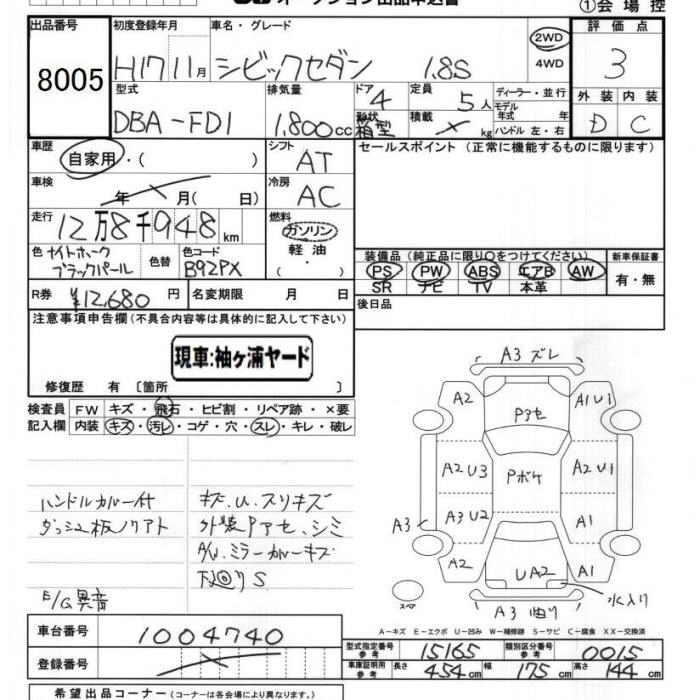 オークション出品申込書
①会場控
出品番号
8005
初度登録年月
H17 11月
車名・グレード
シビックセダン 1.8S
2WD
4WD
評価点
3
型式
DBA-FD1
排気量
1,800cc
ドア
4
形状
箱型
定員
5人
積載
kg
ディーラー・並行
モデル年式 年
ハンドル 左・右
外装 内装
D C
車歴
自家用・( )
シフト
AT
セールスポイント (正常に機能するものに限ります)
車検
年 月( 日)
冷房
AC
走行
12万8千948km
燃料
ガソリン
軽油
( )
色 ナイトホーク
ブラックパール
色替
色コード
B92PX
装備品 (純正品に限り○をつけてください)
PS PW ABS エアB AW
SR ナビ TV 本革
新車保証書
有・無
R券 ¥12,680円
名変期限 月 日
後日品
注意事項申告欄 (不具合内容等は具体的に記入して下さい)
現車:袖ヶ浦ヤード
修復歴 有〔箇所 〕
検査員
記入欄
FW キズ・飛石・ヒビ割・リペア跡・×要
内装 キズ・汚レ・コゲ・穴・スレ・キレ・破レ
ハンドルカバー付
ダッシュ板ノリアト
E/G異音
キズ、U、スリキズ
外装Pアセ、シミ
A/W、ミラーカバーキズ
下廻りS
A3 ズレ
A2
Pアセ
A1 U1
A2 U3
Pボケ
A2 U1
A3
A3 U2
A1
A2
UA2
A1
スペア
A3 曲り
水入り
A-キズ E-エクボ U-凹み W-補修跡 S-サビ C-腐食 XX-交換済
車台番号
1004740
登録番号
型式指定番号
参考
15165
類別区分番号
参考
0015
車庫証明用
参考
長さ 454cm 幅 175cm 高さ 144cm
希望出品コーナー (コーナーは各会場により異なります。)